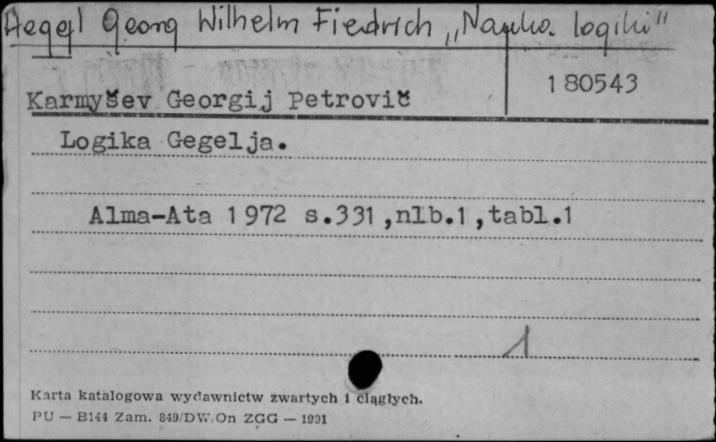 Hegel Georg Wilhelm Fiedrich „Nauka logiki"
180543
Karmyšev Georgij Petrovič
Logika Gegelja.
Alma-Ata 1972 s.331,nlb.1,tabl.1
1
Karta katalogowa wydawnictw zwartych i ciągłych.
PU — B144 Zam. 849/DW/On ZGG — 1991